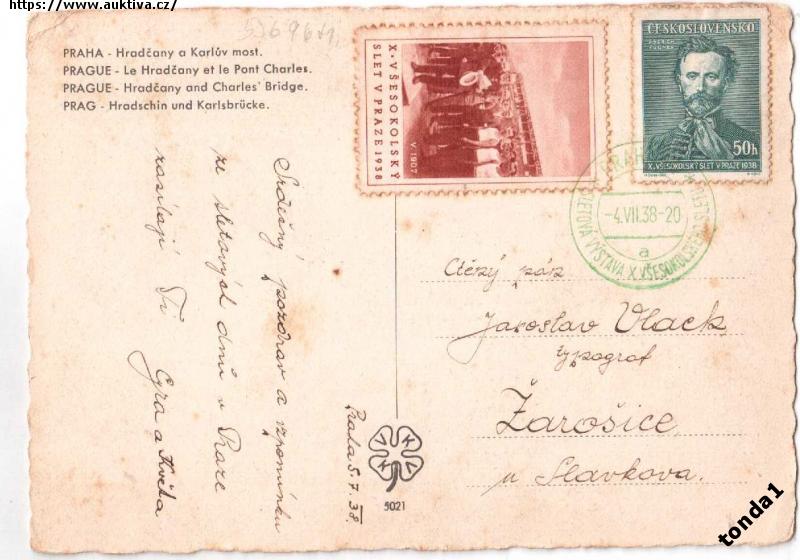 https://www.auktiva.cz/
PRAHA - Hradčany a Karlův most.
PRAGUE - Le Hradčany et le Pont Charles.
PRAGUE - Hradčany and Charles' Bridge.
PRAG - Hradschin und Karlsbrücke.
X. VŠESOKOLSKÝ
SLET V PRAZE 1938
V. 1907
ČESKOSLOVENSKO
50h
X. VŠESOKOLSKÝ SLET V PRAZE 1938
PRAHA
-4.VII.38-20
a
SLETOVÁ VÝSTAVA X. VŠESOKOLSKÝ SLET
Srdečný pozdrav a vzpomínku
ze sletových dnů v Praze
zasílají Ti
a Květa
Praha 5.7.38.
Ctěný pán
Jaroslav Vlack
typograf
Žarošice
u Slavkova.
5021
tonda1